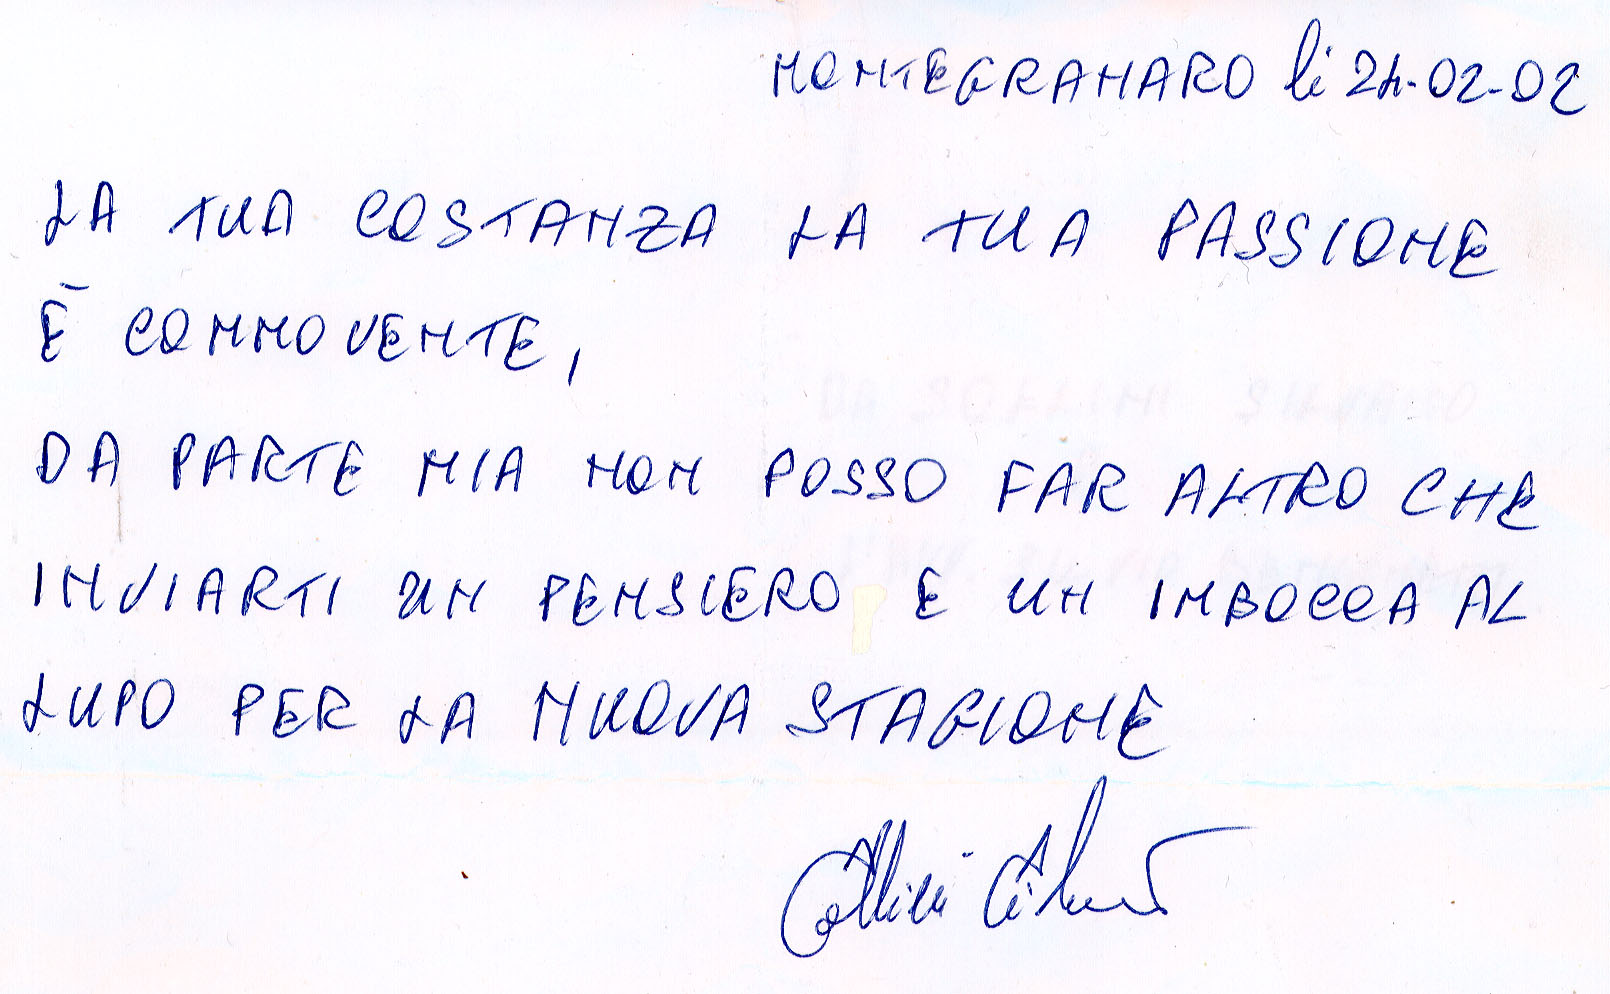 MONTEGRANARO li 24-02-02
LA TUA COSTANZA LA TUA PASSIONE
È COMMOVENTE,
DA PARTE MIA NON POSSO FAR ALTRO CHE
INVIARTI UN PENSIERO E UN IMBOCCA AL
LUPO PER LA NUOVA STAGIONE